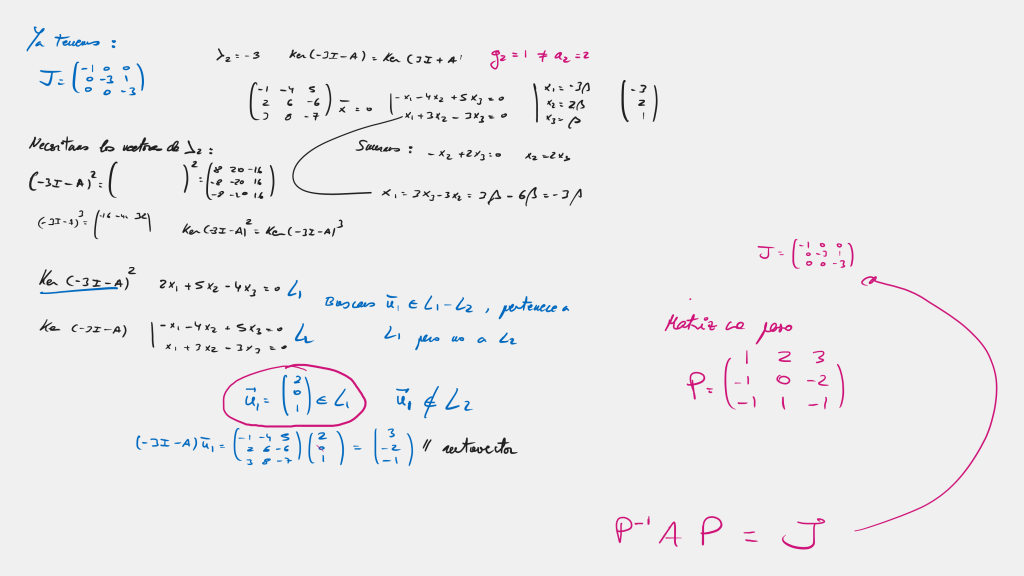 Ya tenemos :
J = (-1 0 0 / 0 -3 1 / 0 0 -3)
λ₂ = -3   Ker(-3I-A) = Ker(3I+A)   g₂ = 1 ≠ a₂ = 2
(-1 -4 5 / 2 6 -6 / 3 8 -7) x̄ = 0   | -x₁ - 4x₂ + 5x₃ = 0 / x₁ + 3x₂ - 3x₃ = 0   | x₁ = -3β / x₂ = 2β / x₃ = β   (-3 / 2 / 1)
Sumamos :   -x₂ + 2x₃ = 0   x₂ = 2x₃
x₁ = 3x₃ - 3x₂ = 3β - 6β = -3β
Necesitamos los vectores de λ₂ :
(-3I-A)² = ( )² = (8 20 -16 / -8 -20 16 / -8 -20 16)
(-3I-A)³ = (-16 -40 32)   Ker(-3I-A)² = Ker(-3I-A)³
Ker (-3I-A)²   2x₁ + 5x₂ - 4x₃ = 0   L₁
Buscamos ū₁ ∈ L₁ - L₂ , pertenece a
L₁ pero no a L₂
Ker (-3I-A)   | -x₁ - 4x₂ + 5x₃ = 0 / x₁ + 3x₂ - 3x₃ = 0   L₂
ū₁ = (2 / 0 / 1) ∈ L₁   ū₁ ∉ L₂
(-3I-A) ū₁ = (-1 -4 5 / 2 6 -6 / 3 8 -7) (2 / 0 / 1) = (3 / -2 / -1) // autovector
J = (-1 0 0 / 0 -3 1 / 0 0 -3)
Matriz de paso
P = (1 2 3 / -1 0 -2 / -1 1 -1)
P⁻¹ A P = J